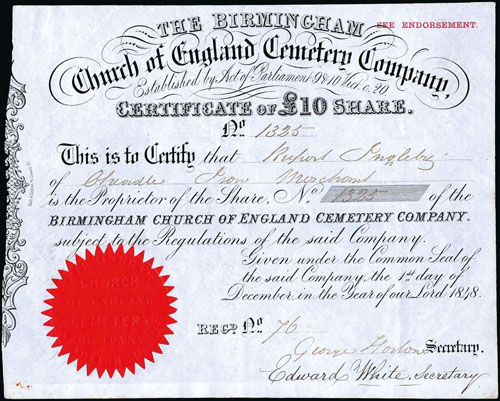 SEE ENDORSEMENT.
THE BIRMINGHAM
Church of England Cemetery Company,
Established by Act of Parliament 9 & 10 Vict. c. 20
CERTIFICATE OF £10 SHARE.
No. 1325
This is to Certify that Rupert Ingleby
of Cheadle Iron Merchant
is the Proprietor of the Share, No. 1325 of the
BIRMINGHAM CHURCH OF ENGLAND CEMETERY COMPANY.
subject to the Regulations of the said Company.
Given under the Common Seal of
the said Company, the 1st day of
December in the Year of our Lord 1848.
CHURCH
OF ENGLAND
CEMETERY
COMPANY
REGD. No. 76
George Secretary.
Edward White, Secretary